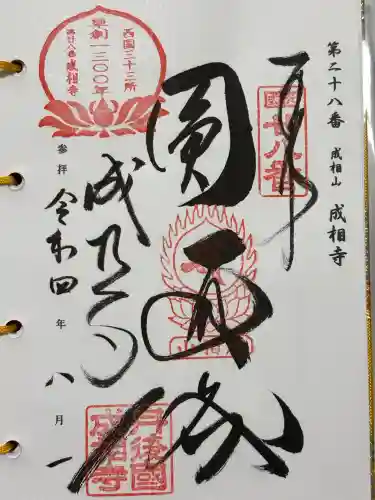 第二十八番 成相山 成相寺
奉拝
西国廿八番
圓通城
成相寺
参拝 令和四年 八月一
西国三十三所
草創1300年
西国廿八番 成相寺
丹後國
成相寺